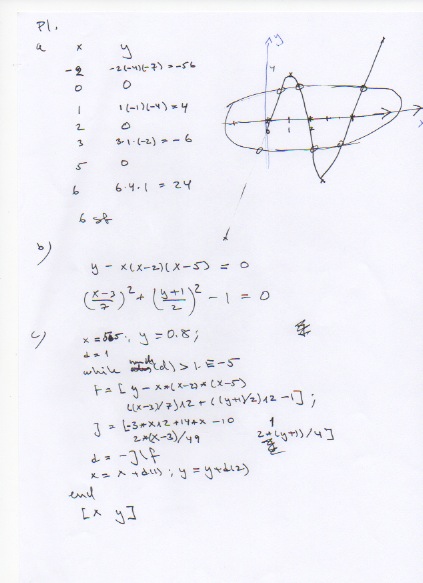 P1.
a x y
-2 -2(-4)(-7) = -56
0 0
1 1(-1)(-4) = 4
2 0
3 3·1·(-2) = -6
5 0
6 6·4·1 = 24
6 st
y
4
0 1 2
x
b)
y - x(x-2)(x-5) = 0
(x-3/7)² + (y+1/2)² - 1 = 0
c)
x = 5; y = 0.8;
d = 1
while (d) > 1.E-5
f = [y - x*(x-2)*(x-5)
((x-3)/7)^2 + ((y+1)/2)^2 - 1];
J = [-3*x^2 + 14*x - 10 1
2*(x-3)/49 2*(y+1)/4]
d = -J\f
x = x + d(1); y = y + d(2)
end
[x y]